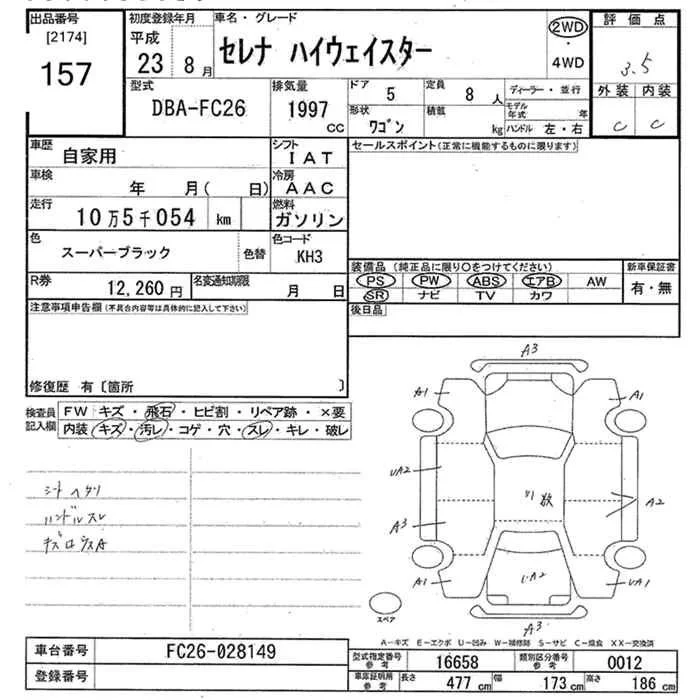 出品番号
[2174]
157
初度登録年月
平成
23 8月
車名・グレード
セレナ ハイウェイスター
2WD
・
4WD
評価点
3.5
外装 内装
C C
型式
DBA-FC26
排気量
1997
CC
ドア
5
定員
8 人
形状
ワゴン
積載
kg
ディーラー・並行
モデル年式 年
ハンドル 左・右
車歴
自家用
シフト
IAT
車検
年 月( 日)
冷房
AAC
走行
10万5千054 km
燃料
ガソリン
色
スーパーブラック
色替
色コード
KH3
R券
12,260円
名変通知期限
月 日
セールスポイント(正常に機能するものに限ります)
装備品(純正品に限り○をつけてください)
新車保証書
PS PW ABS エアB AW
SR ナビ TV カワ
有・無
後日品
注意事項申告欄(不具合内容等は具体的に記入して下さい)
修復歴 有〔箇所 〕
検査員記入欄
FW キズ・飛石・ヒビ割・リペア跡・×要
内装 キズ・汚レ・コゲ・穴・スレ・キレ・破レ
シートヘタリ
ハンドルスレ
A3
A1
A1
UA2
A2
A3
A1
UA1
A3
スペア
A-キズ E-エクボ U-凹み W-補修跡 S-サビ C-腐食 XX-交換済
車台番号
FC26-028149
登録番号
型式指定番号
参考
16658
類別区分番号
参考
0012
車庫証明用
参考
長さ 477cm
幅 173cm
高さ 186cm